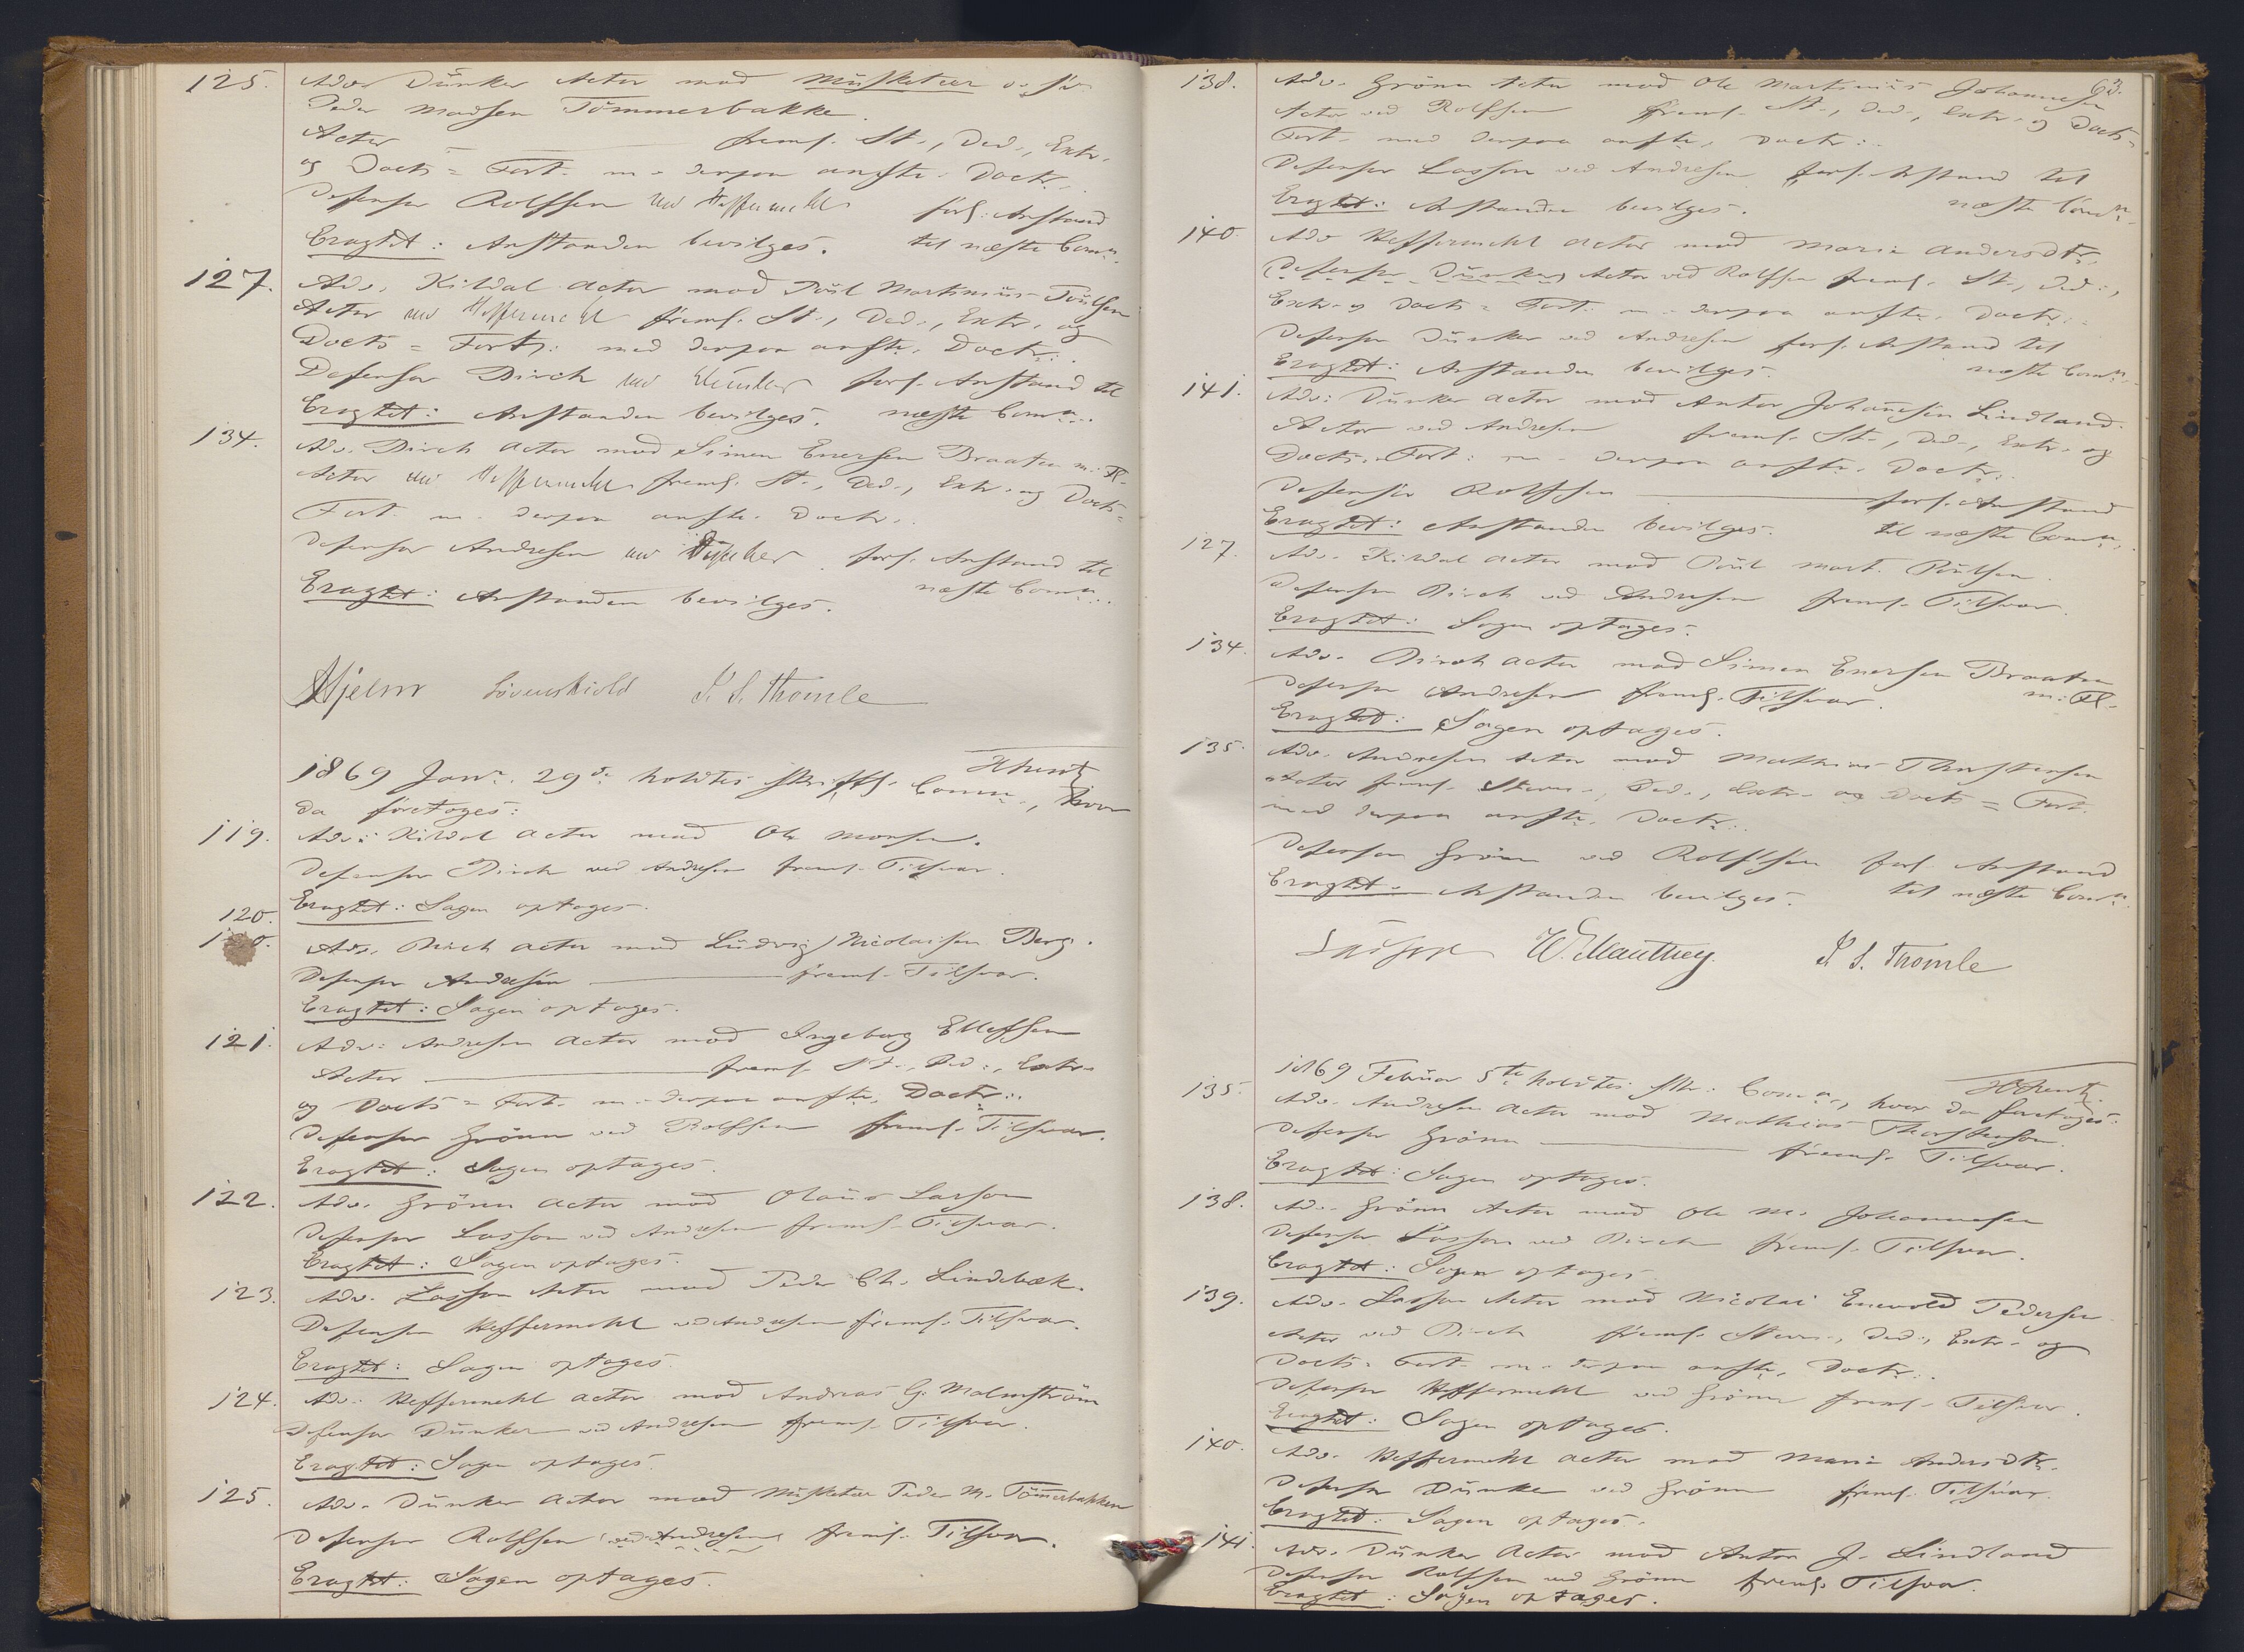 125. Adv. Dünker Actor mod Musketeer
Peder Madsen Tömmerbakke.
Actor — freml. St., Ded., Extr.
og Docts = Fort. m. derpaa anførte Doctr.
Defensor Rolfsen ved Heffermehl forl. Anstand
Eragtet: Anstanden bevilges. til næste Comn.
127. Adv. Kildal Actor mod Poul Martinius Poulsen
Actor ved Heffermehl freml. St., Ded., Extr. og
Docts = Fort: med derpaa anførte Doctr:.
Defensor Birch ved Dünker forl. Anstand til
Eragtet: Anstanden bevilges. næste Comn.
134. Adv. Birch Actor mod Simen Enersen Braaten m. Fl.
Actor ved Heffermehl freml. St., Ded., Extr. og Docts =
Fort. m. derpaa anførte Doctr.
Defensor Andresen ved Dünker forl. Anstand til
Eragtet: Anstanden bevilges. næste Comn.
Hjelm Løvenskiold J. S. Thomle
1869 Janr. 29de holdtes skriftl. Comn., hvor
da foretoges:
119. Adv: Kildal Actor mod Ole Monsen.
Defensor Birch ved Andresen freml. Tilsvar.
Eragtet: Sagen optages.
120.
Adv. Birch Actor mod Ludvig Nicolaisen Berg.
Defensor Andresen — freml. Tilsvar.
Eragtet: Sagen optages.
121. Adv: Andresen Actor mod Ingeborg Ellefsen
Actor — freml. St., Ded., Extr.
og Docts = Fort. m. derpaa anførte Doctr:.
Defensor Grönn ved Rolfsen freml. Tilsvar.
Eragtet: Sagen optages.
122. Adv. Grönn Actor mod Olaus Larsen
Defensor Lasson ved Andresen freml. Tilsvar.
Eragtet: Sagen optages.
123. Adv. Lasson Actor mod Peder Ch. Lindebæk.
Defensor Heffermehl ved Andresen freml. Tilsvar.
Eragtet: Sagen optages.
124. Adv: Heffermehl Actor mod Andreas G. Malmström
Defensor Dünker ved Andresen freml. Tilsvar.
Eragtet: Sagen optages.
125. Adv. Dünker Actor mod Musketeer Peder M. Tömerbakken
Defensor Rolfsen (ved Andresen) freml. Tilsvar.
Eragtet: Sagen optages.
63.
138. Adv. Grönn Actor mod Ole Martinius Johannesen
Actor ved Rolfsen freml. St., Ded., Extr. og Docts =
Fort. med derpaa anførte Doctr:.
Defensor Lasson ved Andresen forl. Anstand til
Eragtet: Anstanden bevilges. næste Comn.
140. Adv Heffermehl Actor mod Maria Andersdtr.
(Defensor Dünker) Actor ved Rolfsen freml. St., Ded.,
Extr. og Docts = Fort. m. derpaa anførte Doctr:.
Defensor Dünker ved Andresen forl. Anstand til
Eragtet: Anstanden bevilges. næste Comn.
141. Adv: Dünker Actor mod Anton Johannesen Lindland.
Actor ved Andresen freml. St., Ded., Extr. og
Docts = Fort: m. derpaa anførte Doctr:.
Defensor Rolfsen — forl. Anstand
Eragtet: Anstanden bevilges. til næste Comn.
127. Adv. Kildal Actor mod Poul Mart. Poulsen.
Defensor Birch ved Andresen freml. Tilsvar.
Eragtet: Sagen optages.
134. Adv. Birch Actor mod Simen Enersen Braaten
Defensor Andresen freml. Tilsvar. m: Fl.
Eragtet: Sagen optages.
135. Adv. Andresen Actor mod Mathias Thorstensen
Actor freml. Stevn., Ded., Extr. og Docts = Fort.
med derpaa anførte Doctr:.
Defensor Grönn ved Rolfsen forl. Anstand
Eragtet: Anstanden bevilges. til næste Comn.
W. Manthey. J. S. Thomle
1869 Februar 5te holdtes skr: Comn., hvor da foretoges:
135. Adv. Andresen Actor mod Mathias Thorstensen.
Defensor Grönn — freml. Tilsvar.
Eragtet: Sagen optages.
138. Adv. Grönn Actor mod Ole M. Johannesen
Defensor Lasson ved Birch freml. Tilsvar.
Eragtet: Sagen optages.
139. Adv. Lasson Actor mod Nicolai Enevold Pedersen
Actor ved Birch freml. Stevn., Ded., Extr. og
Docts = Fort. m. derpaa anførte Doctr:.
Defensor Heffermehl ved Grönn freml. Tilsvar.
Eragtet: Sagen optages.
140. Adv. Heffermehl Actor mod Maria Andersdtr.
Defensor Dünker ved Grönn freml. Tilsvar.
Eragtet: Sagen optages.
141. Adv. Dünker Actor mod Anton J. Lindland
Defensor Rolfsen ved Grönn freml. Tilsvar.
Eragtet: Sagen optages.